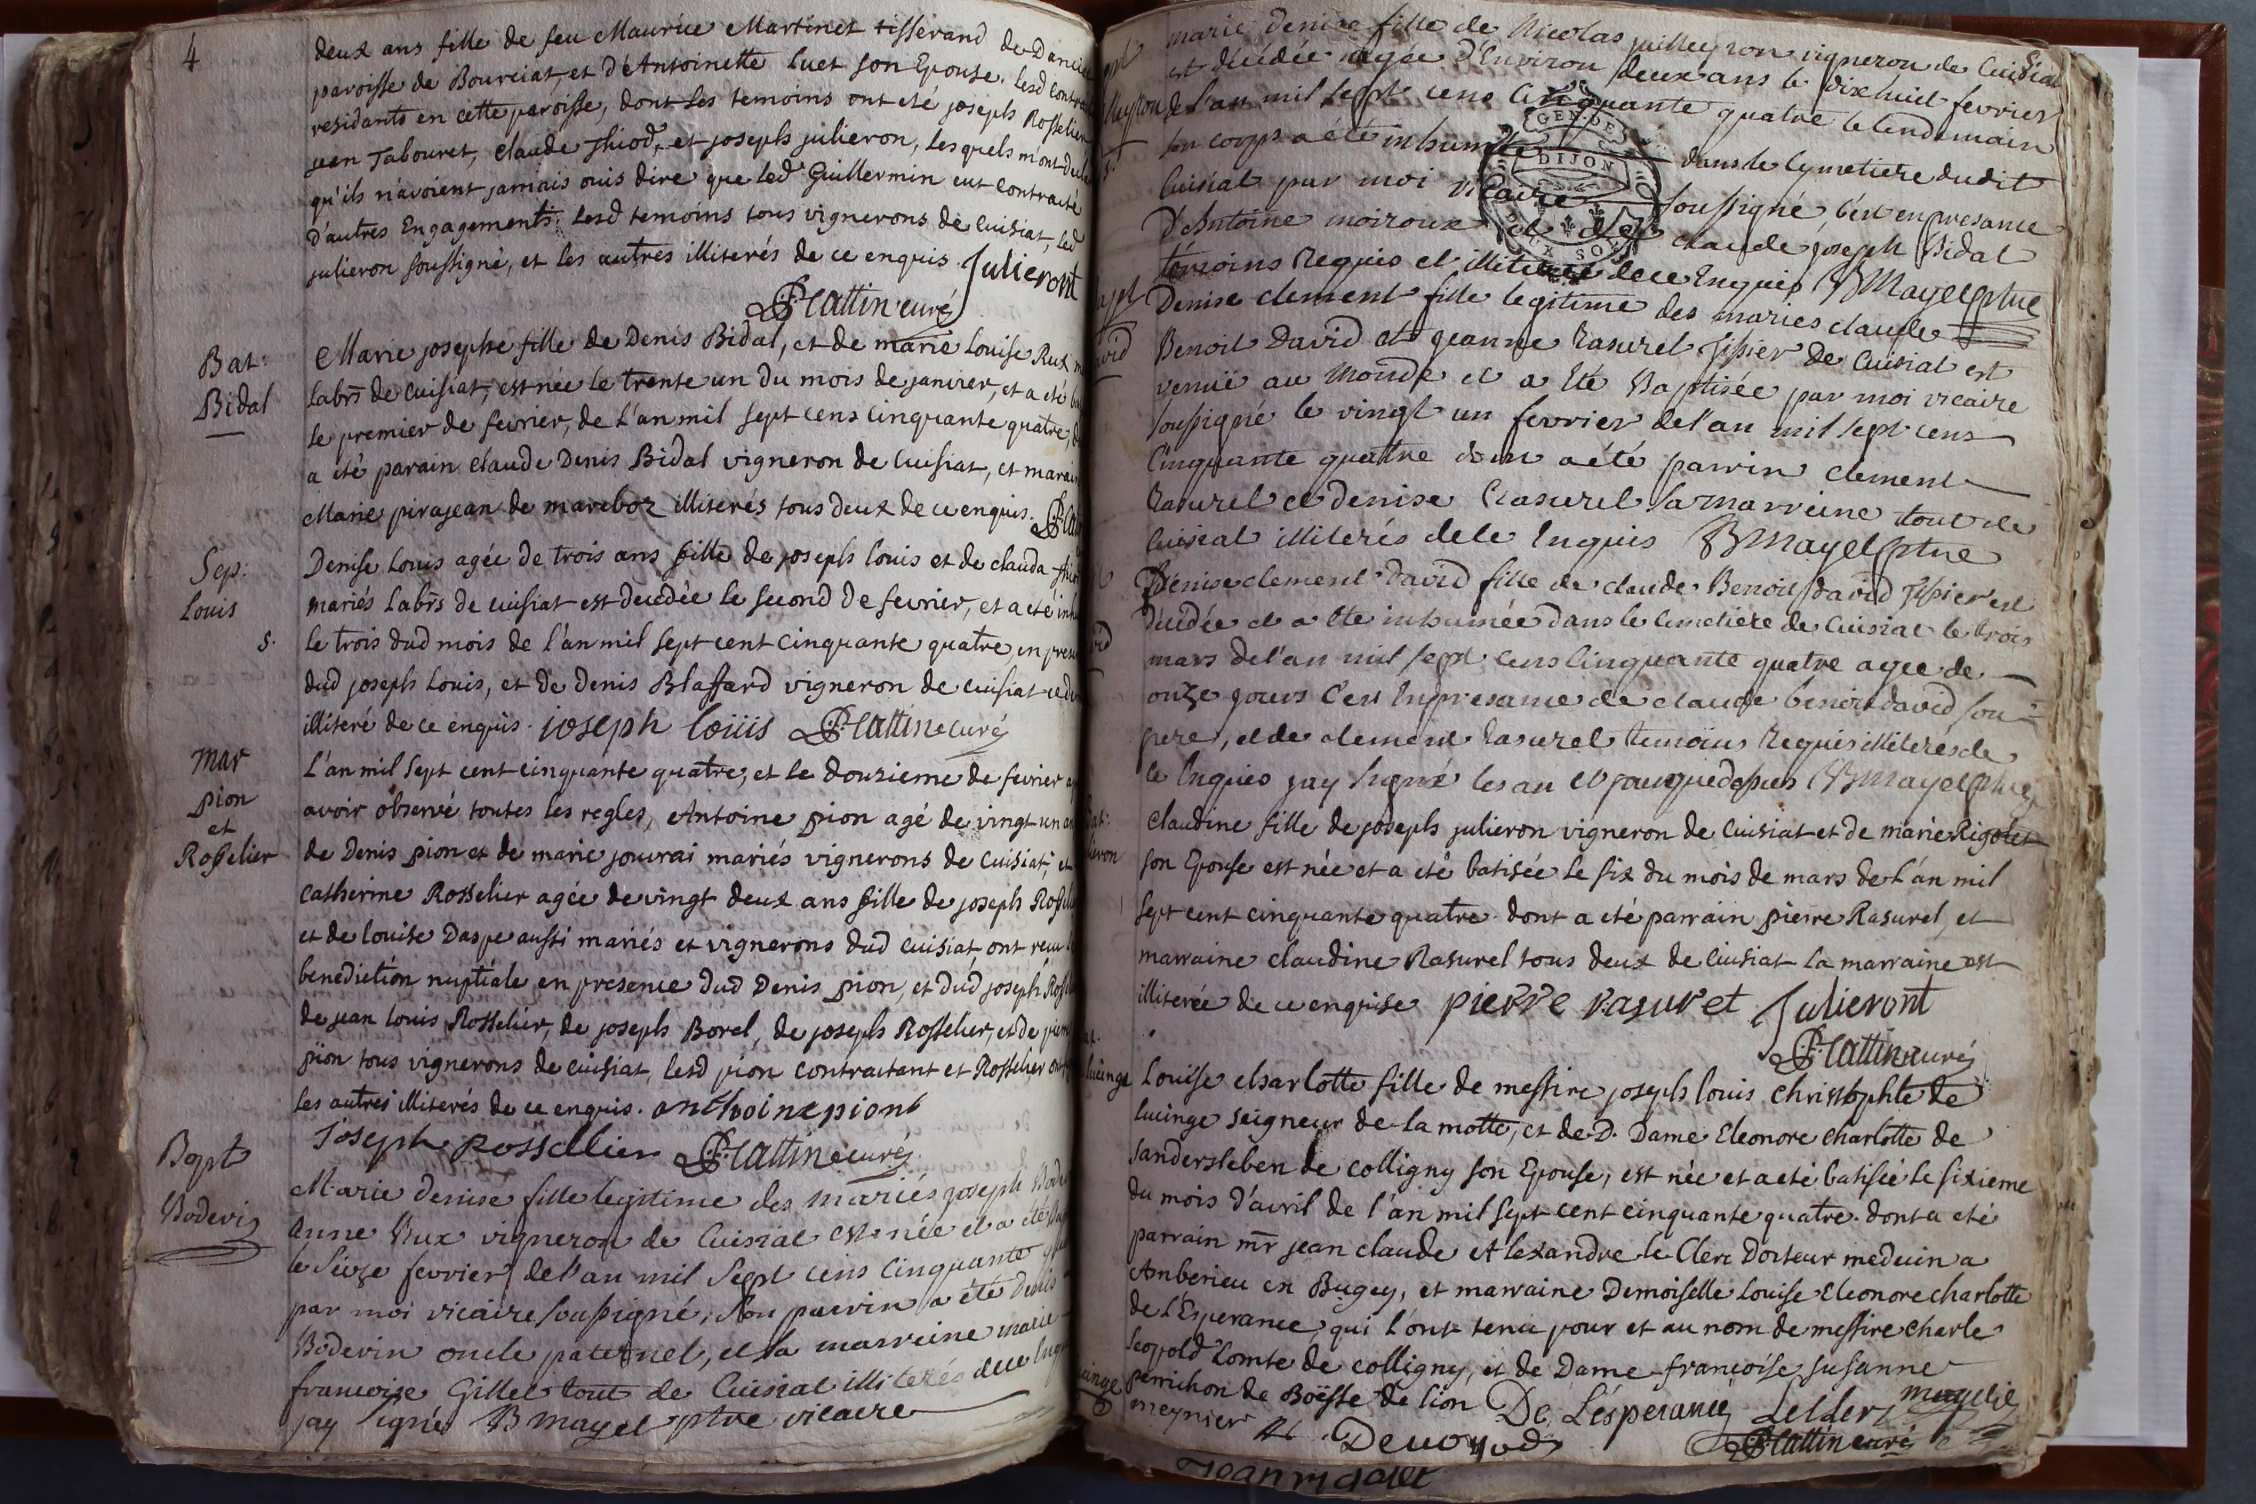 4
deux ans fille de feu Maurice Martinet tisserand de
paroisse de Bourciat, et d'Antoinette luet son Epouse. lesd
residants en cette paroisse, dont les temoins ont eté joseph Rosselier
jean Tabouret, claude Thiod, et joseph julieron, lesquels m'ont
qu'ils n'avoient jamais ouis dire que led Guillermin eut contracté
d'autres Engagements. Lesd temoins tous vignerons de Cuisiat, led
julieron soussigné, et les autres illiterés de ce enquis. Julieront
P: Cattin curé
Bat:
Bidal
Marie josephe fille de Denis Bidal, et de marie Louise Rux
labrs de Cuisiat, est née le trente un du mois de janvier, et a eté
le premier de fevrier, de l'an mil sept cens cinquante quatre,
a eté parain claude Denis Bidal vigneron de Cuisiat, et
Marie pirajean de marcboz illiterés tous deux de ce enquis.
Sep:
Louis
5.
Denise Louis agée de trois ans fille de joseph louis et de clauda
mariés Labrs de cuisiat est decedée le second de fevrier, et a eté
le trois dud mois de l'an mil sept cent cinquante quatre, en
dud joseph Louis, et de Denis Blassard vigneron de cuisiat
illiteré de ce enquis. joseph loüis P: Cattin curé
Mar
pion
et
Rosselier
L'an mil sept cent cinquante quatre, et le douzieme de fevrier
avoir observé toutes les regles, Antoine pion agé de vingt un
de Denis pion et de marie jouvrai mariés vignerons de Cuisiat, et
Catherine Rosselier agée de vingt deux ans fille de joseph
et de louise Daspe aussi mariés et vignerons dud cuisiat, ont
benediction nuptiale en presence dud Denis pion, et dud joseph
de jean louis Rosselier, de joseph Borel, de joseph Rosselier, et de
pion tous vignerons de cuisiat, lesd pion contractant et Rosselier
les autres illiterés de ce enquis. anthoine piont
Joseph Rossellier P: Cattin curé
Bapt
Boderin
Marie denise fille legitime des mariés joseph
anne Rux vigneron de Cuisiat est née et a été
le seize fevrier de l'an mil sept cens cinquante
par moi vicaire soussigné, son parrin a été denis
Boderin oncle paternel, et la marreine marie
françoise Gillet tout de Cuisiat illiterés de ce
jay signé B Mayet ptre vicaire
marie denise fille de Nicolas juilleyron vigneron de Cuisiat
est décédée agée d'Environ deux ans le dixhuit fevrier
de l'an mil sept cens Cinquante quatre le lendemain
son corps a été inhumé dans le Cymetiere dudit
Cuisiat par moi vicaire soussigné, c'est en presance
d'Antoine moiroux et de claude joseph Bidat
témoins Requis et illiterés de ce Enquis B Mayet ptre
GEN. DE
DIJON
DEUX SOLS
Denise clement fille legitime des mariés claude
Benoit David et jeanne Rasurel Tissier de Cuisiat est
venuë au Monde et a Eté Baptisée par moi vicaire
soussigné le vingt un fevrier de l'an mil sept cens
Cinquante quatre dont a été parrin clement
Rasurel et denise Rasurel sa marreine tout de
Cuisiat illiterés de ce Enquis B Mayet ptre
Denise clement David fille de claude Benoit david Tissier est
décédée et a Ete inhumée dans le Cimetiere de Cuisiat le trois
mars de l'an mil sept cens Cinquante quatre agée de
onze jours c'est En presance de claude benoit david son
pere, et de clement Rasurel temoins Requis illiterés de
ce Enquis jay signé les an et jour que dessus B Mayet ptre
Claudine fille de joseph julieron vigneron de Cuisiat et de marie Rigolet
son Epouse est née et a eté batisée le six du mois de mars de l'an mil
sept cent cinquante quatre. dont a eté parrain pierre Rasurel, et
marraine claudine Rasurel tous deux de Cuisiat la marraine est
illiterée de ce enquise pierre rasuret Julieront
P: Cattin curé
Louise charlotte fille de messire joseph louis christophle de
lucinge seigneur de la motte, et de D. Dame Eleonore charlotte de
sandersleben de colligny son Epouse, est née et a eté batisée le sixieme
du mois d'avril de l'an mil sept cent cinquante quatre. dont a eté
parrain mr jean claude Alexandre le Clerc Docteur medecin a
Amberieu en Bugey, et marraine Demoiselle louise Eleonore charlotte
de l'Esperance, qui l'ont tenu pour et au nom de messire charle
leopold Comte de colligny, et de Dame françoise susanne
perrichon de Boësse de lion De L'ésperance Leclerc
meynier Devoyod P: Cattin curé
Jean rigollet